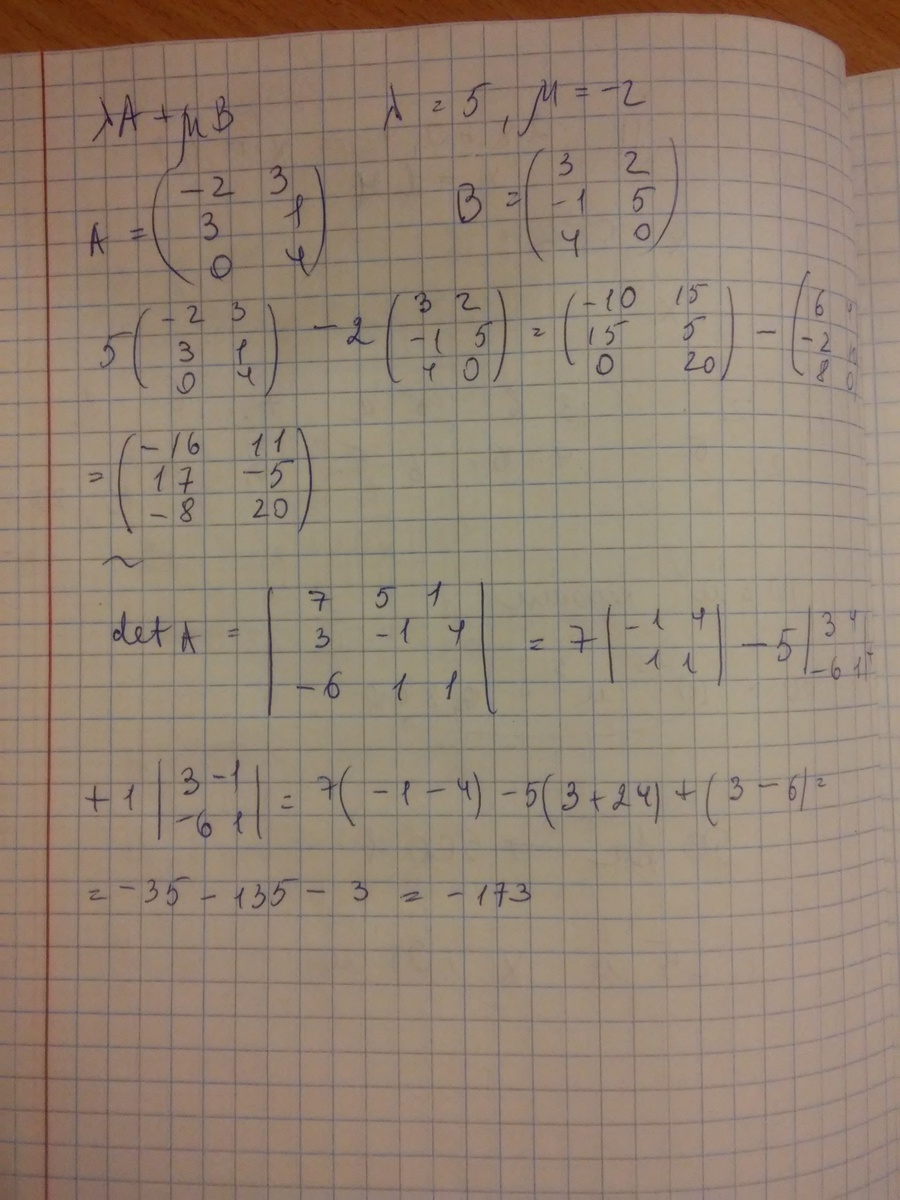 λA + μB λ = 5, μ = -2
A = (-2 3
3 1
0 4) B = (3 2
-1 5
4 0)
5 (-2 3
3 1
0 4) - 2 (3 2
-1 5
4 0) = (-10 15
15 5
0 20) - (6
-2 10
8 0
= (-16 11
17 -5
-8 20)
~
det A = |7 5 1
3 -1 4
-6 1 1| = 7 |-1 4
1 1| - 5 |3 4
-6 1|
+ 1 |3 -1
-6 1| = 7(-1 - 4) - 5(3 + 24) + (3 - 6) =
= -35 - 135 - 3 = -173